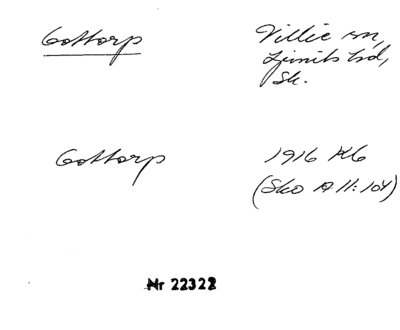 Gottorp
Villie sn,
Ljunits hd,
Sk.
Gottorp
1916 KG
(Sko A II:104)
Nr 22322